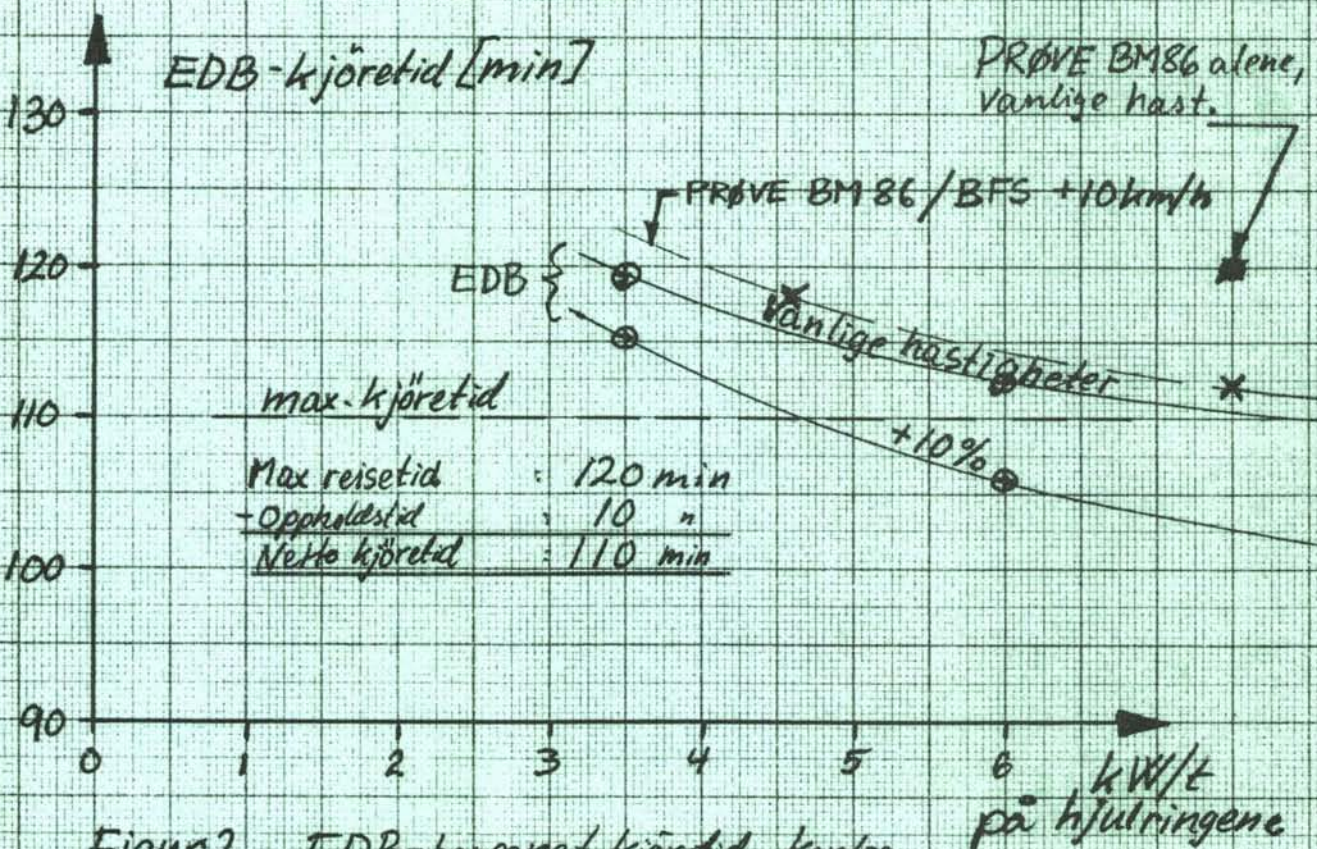 EDB-kjöretid [min]
PRØVE BM86 alene,
vanlige hast.
130
PRØVE BM 86 / BFS +10 km/h
120
EDB {
Vanlige hastigheter
max. kjöretid
110
+10%
Max reisetid : 120 min
-Oppholdstid : 10 "
Netto kjöretid : 110 min
100
90
0 1 2 3 4 5 6
kW/t
på hjulringene